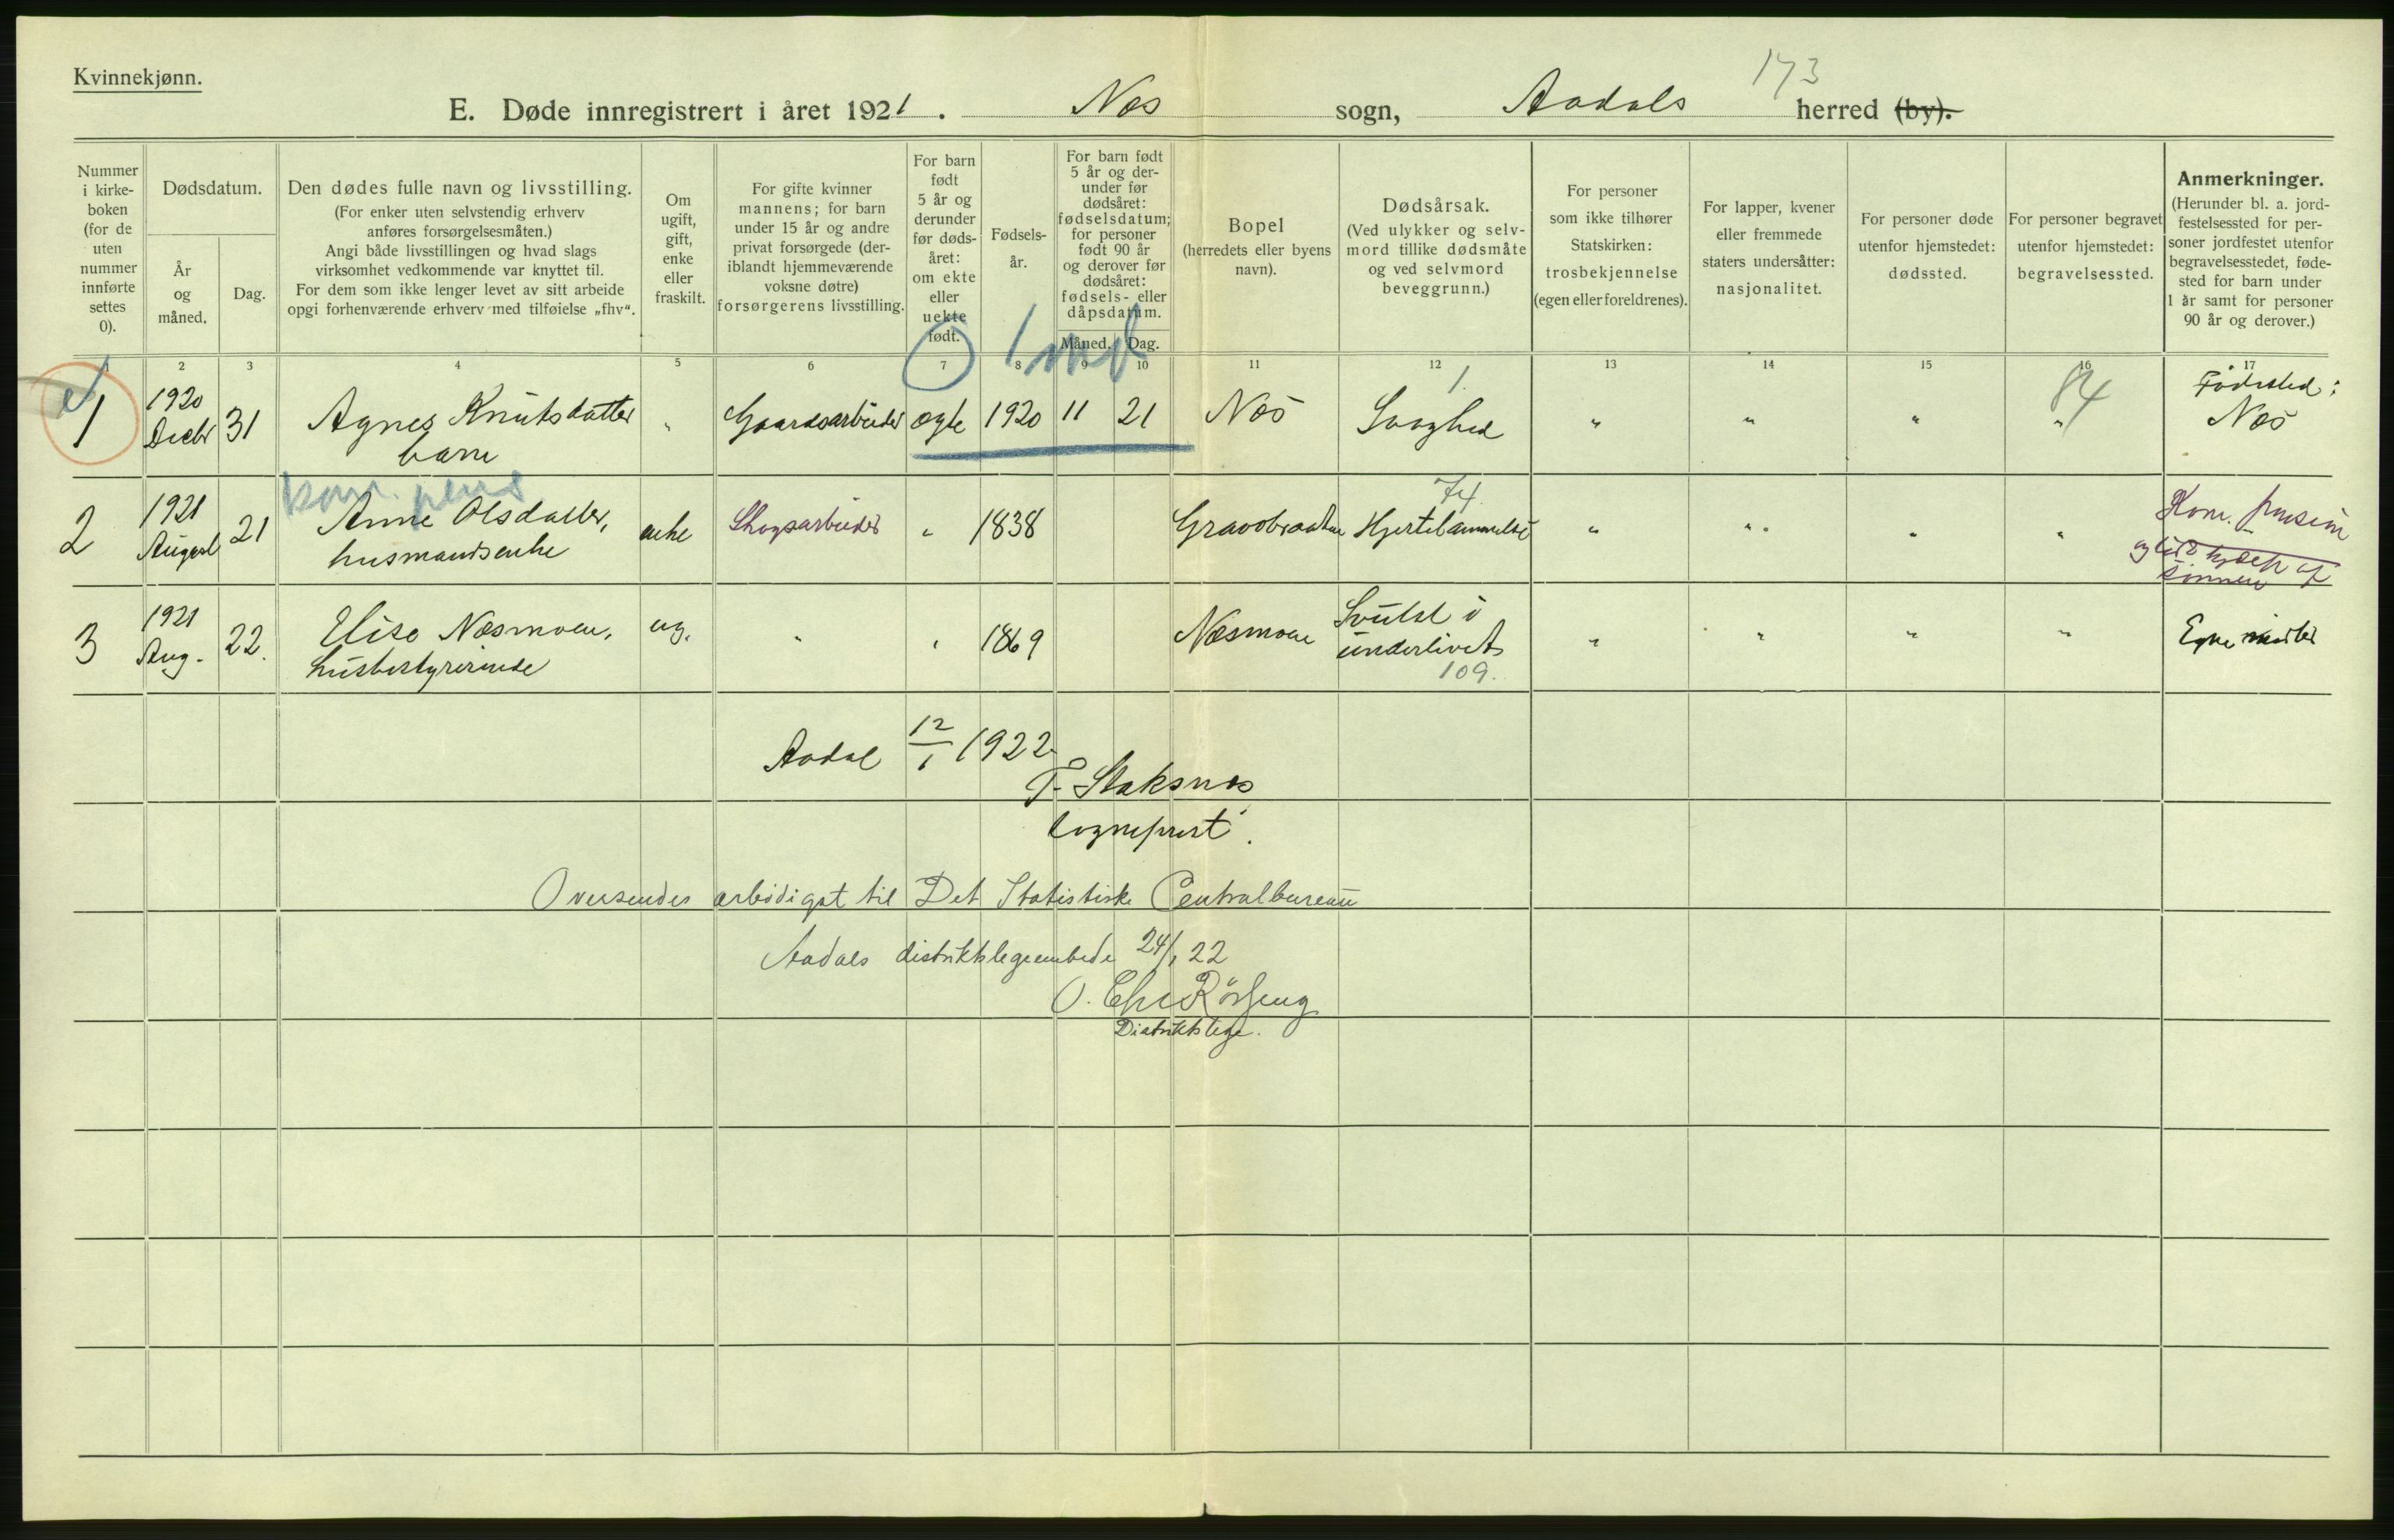 Kvinnekjønn.
173
E. Døde innregistrert i året 1921. Næs sogn, Aadals herred (by).
Nummer i kirke- boken (for de uten nummer innførte settes 0).
Dødsdatum.
År og måned.
Dag.
Den dødes fulle navn og livsstilling.
(For enker uten selvstendig erhverv anføres forsørgelsesmåten.)
Angi både livsstillingen og hvad slags virksomhet vedkommende var knyttet til.
For dem som ikke lenger levet av sitt arbeide opgi forhenværende erhverv med tilføielse „fhv“.
Om ugift, gift, enke eller fraskilt.
For gifte kvinner mannens; for barn under 15 år og andre privat forsørgede (der- iblandt hjemmeværende voksne døtre) forsørgerens livsstilling.
For barn født 5 år og derunder før døds- året: om ekte eller uekte født.
Fødsels- år.
For barn født 5 år og der- under før dødsåret: fødselsdatum; for personer født 90 år og derover før dødsåret: fødsels- eller dåpsdatum.
Måned. Dag.
Bopel (herredets eller byens navn).
Dødsårsak. (Ved ulykker og selv- mord tillike dødsmåte og ved selvmord beveggrunn.)
For personer som ikke tilhører Statskirken: trosbekjennelse (egen eller foreldrenes).
For lapper, kvener eller fremmede staters undersåtter: nasjonalitet.
For personer døde utenfor hjemstedet: dødssted.
For personer begravet utenfor hjemstedet: begravelsessted.
Anmerkninger. (Herunder bl. a. jord- festelsessted for per- soner jordfestet utenfor begravelsesstedet, føde- sted for barn under 1 år samt for personer 90 år og derover.)
0 1 md
1 2 3 4 5 6 7 8 9 10 11 12 13 14 15 16 17
1 1920 Decbr 31 Agnes Knutsdatter barn " Gaardsarbeider ægte 1920 11 21 Næs Svaghed 1 " " " " 84 Fødested: Næs
kom. pens
2 1921 August 21 Anne Olsdatter, husmandsenke enke Skogsarbeider " 1838 Gravobraaten Hjertelammelse 74. " " " " Kom. pension og lidt hjælp af sønnen
3 1921 Aug. 22. Elise Næsmoen, husbestyrerinde ug. " " 1869 Næsmoen Svulst i underlivet 109. " " " " Egne midler
Aadal 12/1 1922
T. Staksnæs
sogneprest.
Oversendes ærbødigst til Det Statistiske Centralbureau
Aadals distriktslegeembede 24/1 22
O. Chr
Distriktslege.